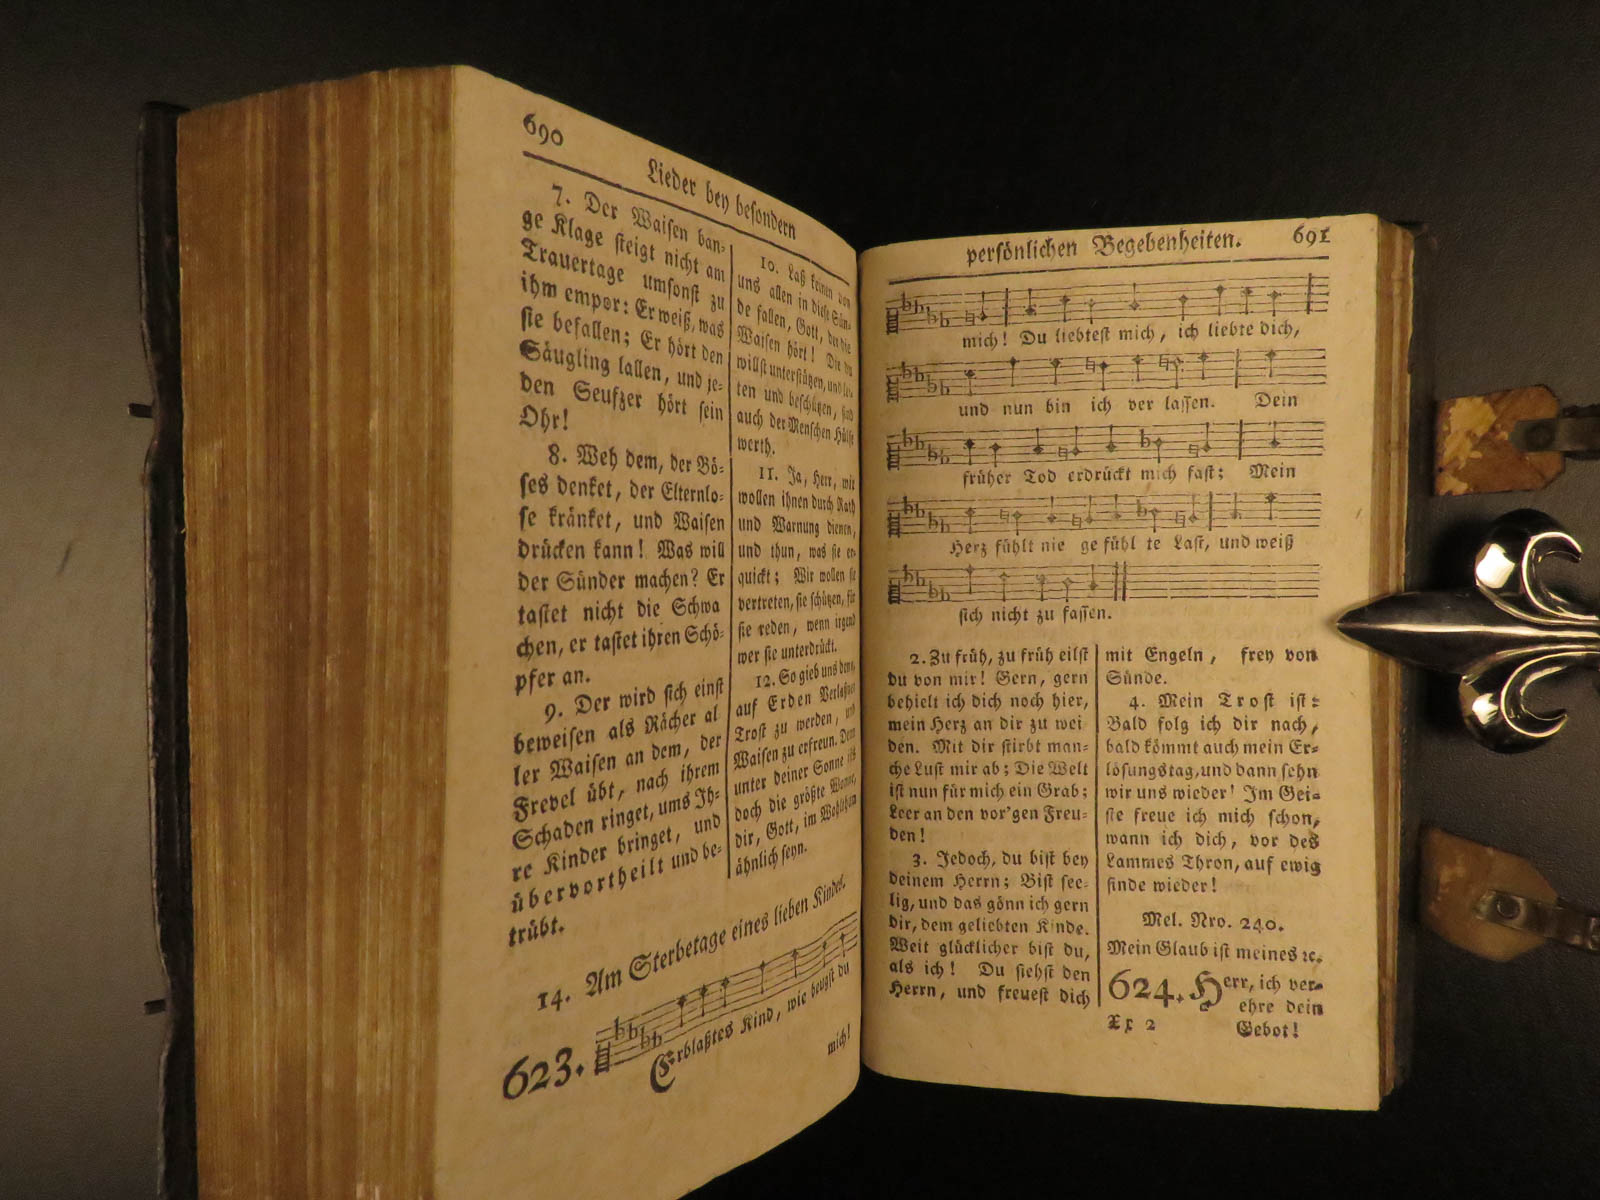 690
Lieder bey besondern
7. Der Waisen ban-
ge Klage steigt nicht am
Trauertage umsonst zu
ihm empor: Er weiß, was
sie befallen; Er hört den
Säugling lallen, und je-
den Seufzer hört sein
Ohr!
8. Weh dem, der Bö-
ses denket, der Elternlo-
se kränket, und Waisen
drücken kann! Was will
der Sünder machen? Er
tastet nicht die Schwa
chen, er tastet ihren Schö-
pfer an.
9. Der wird sich einst
beweisen als Rächer al
ler Waisen an dem, der
Frevel übt, nach ihrem
Schaden ringet, ums Ih-
re Kinder bringet, und
übervortheilt und be-
trübt.
10. Laß keinen von
uns allen in diese Sün-
de fallen, Gott, der die
Waisen hört! Die du
willst unterstützen, und lei-
ten und beschützen, sind
auch der Menschen Hülfe
werth.
11. Ja, Herr, wir
wollen ihnen durch Rath
und Warnung dienen,
und thun, was sie er-
quickt; Wir wollen sie
vertreten, sie schützen, für
sie reden, wenn irgend
wer sie unterdrückt.
12. So gieb uns denn,
auf Erden Verlaßner
Trost zu werden, und
Waisen zu erfreun. Denn
unter deiner Sonne ists
doch die größte Wonne,
dir, Gott, im Wohlthun
ähnlich seyn.
14. Am Sterbetage eines lieben Kindes.
623.
Erblaßtes Kind, wie beugst du
mich!
persönlichen Begebenheiten. 691
mich! Du liebtest mich, ich liebte dich,
und nun bin ich ver lassen. Dein
früher Tod erdrückt mich fast; Mein
Herz fühlt nie ge fühl te Last, und weiß
sich nicht zu fassen.
2. Zu früh, zu früh eilst
du von mir! Gern, gern
behielt ich dich noch hier,
mein Herz an dir zu wei
den. Mit dir stirbt man-
che Lust mir ab; Die Welt
ist nun für mich ein Grab;
Leer an den vor'gen Freu-
den!
3. Jedoch, du bist bey
deinem Herrn; Bist see-
lig, und das gönn ich gern
dir, dem geliebten Kinde.
Weit glücklicher bist du,
als ich! Du siehst den
Herrn, und freuest dich
mit Engeln, frey von
Sünde.
4. Mein Trost ist:
Bald folg ich dir nach,
bald kömmt auch mein Er-
lösungstag, und dann sehn
wir uns wieder! Im Gei-
ste freue ich mich schon,
wann ich dich, vor des
Lammes Thron, auf ewig
finde wieder!
Mel. Nro. 240.
Mein Glaub ist meines ꝛc.
624. Herr, ich ver-
ehre dein
Xx 2 Gebot!